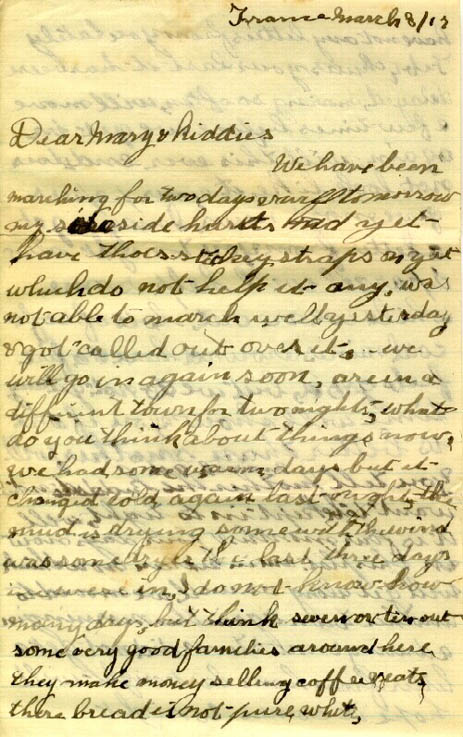 France March 8/17
Dear Mary & Kiddies
We have been
marching for two days & will tomorrow
my side hurts and yet
have those stickey straps on yet
which do not help it any, was
not able to march well yesterday
& got called out over it, we
will go in again soon, are in a
different town for two nights, what
do you think about things now,
we had some warm days but it
changed cold again last night, the
mud is drying some with the wind
was some the last three days
we in, I do not know how
many days, but think seven or ten out
some very good families around here
they make money selling coffee & eats
there bread is not pure white,